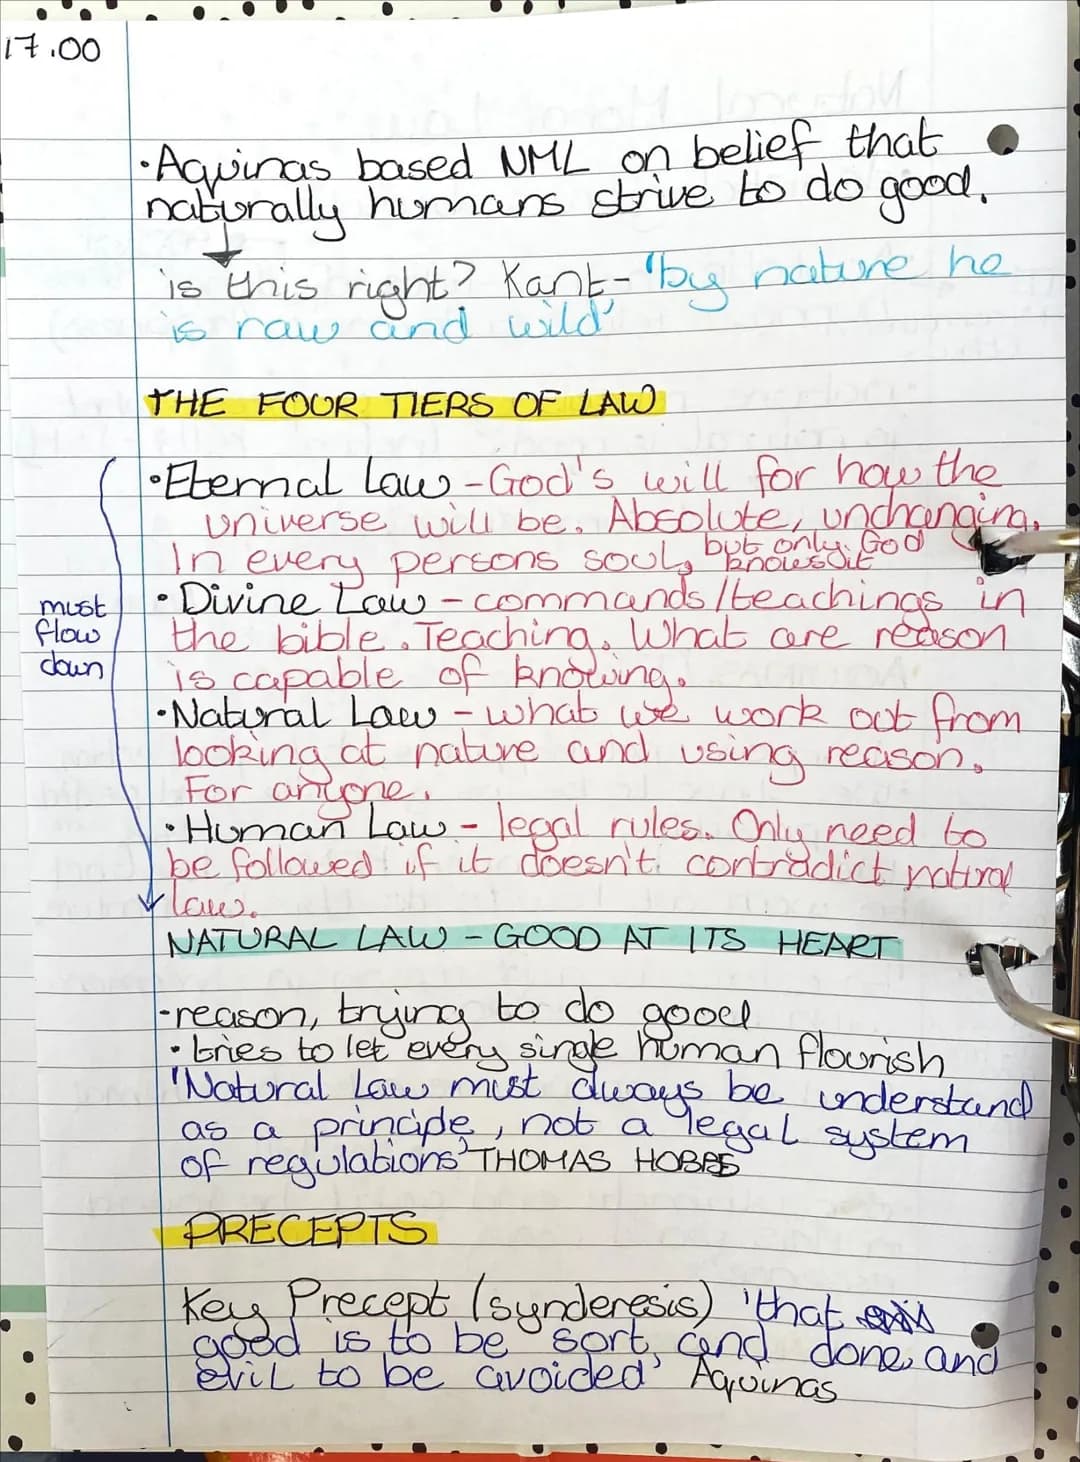 17.00
·Aquinas based NML on belief that
naturally humans strive to do good.
is this right? Kant- "by nature he
is raw and wild'
THE FOUR TIERS OF LAW
·Eternal Law -God's will for how the
universe will be. Absolute, unchanging.
In every persons soul, but only God
knows it
·Divine Law - commands/teachings in
must
flow
down
the bible. Teaching. What are reason
is capable of knowing.
·Natural Law - what we work out from
looking at nature and using reason.
For anyone.
·Human Law - legal rules. Only need to
be followed if it doesn't contradict natural
law.
NATURAL LAW - GOOD AT ITS HEART
·reason, trying to do good
·tries to let every single human flourish
'Natural Law must always be understand
as a principle, not a legal system
of regulations' THOMAS HOBBS
PRECEPTS
Key Precept (synderesis) 'that
good is to be sort and done and
evil to be avoided' Aquinas